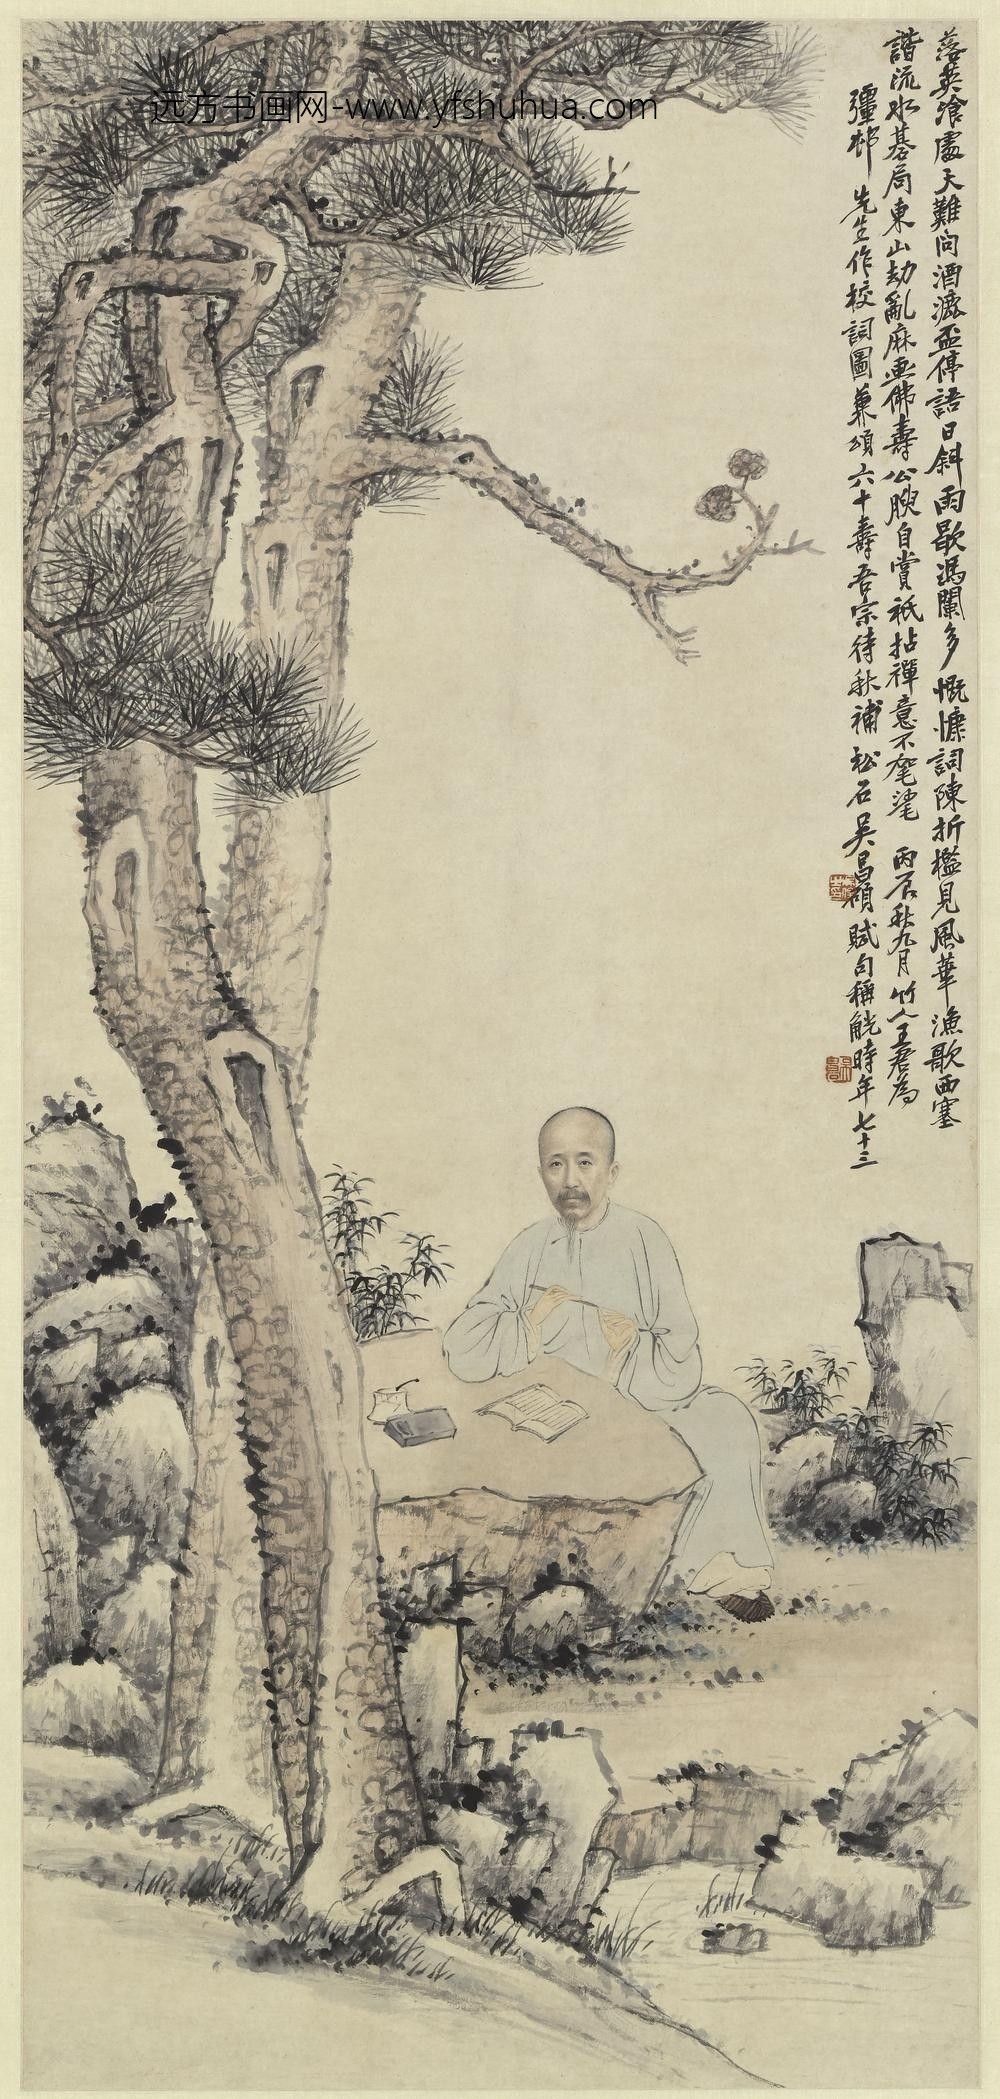 远方书画网-www.yfshuhua.com
落英飡處天難問酒瀝盃停語日斜雨歇馮闌多慨慷詞陳折檻見風華漁歌西塞
諧流水棊局東山劫亂麻画佛壽公腴自賞祇拈禪意不毣毣 丙辰秋九月竹人王君為
彊邨先生作校詞圖兼頌六十壽吾宗待秋補松石吳昌碩賦句稱觥時年七十三